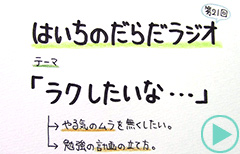 第21回
はいちのだらだラジオ
テーマ
「ラクしたいな・・・」
→やる気のムラを無くしたい。
→勉強の計画の立て方。